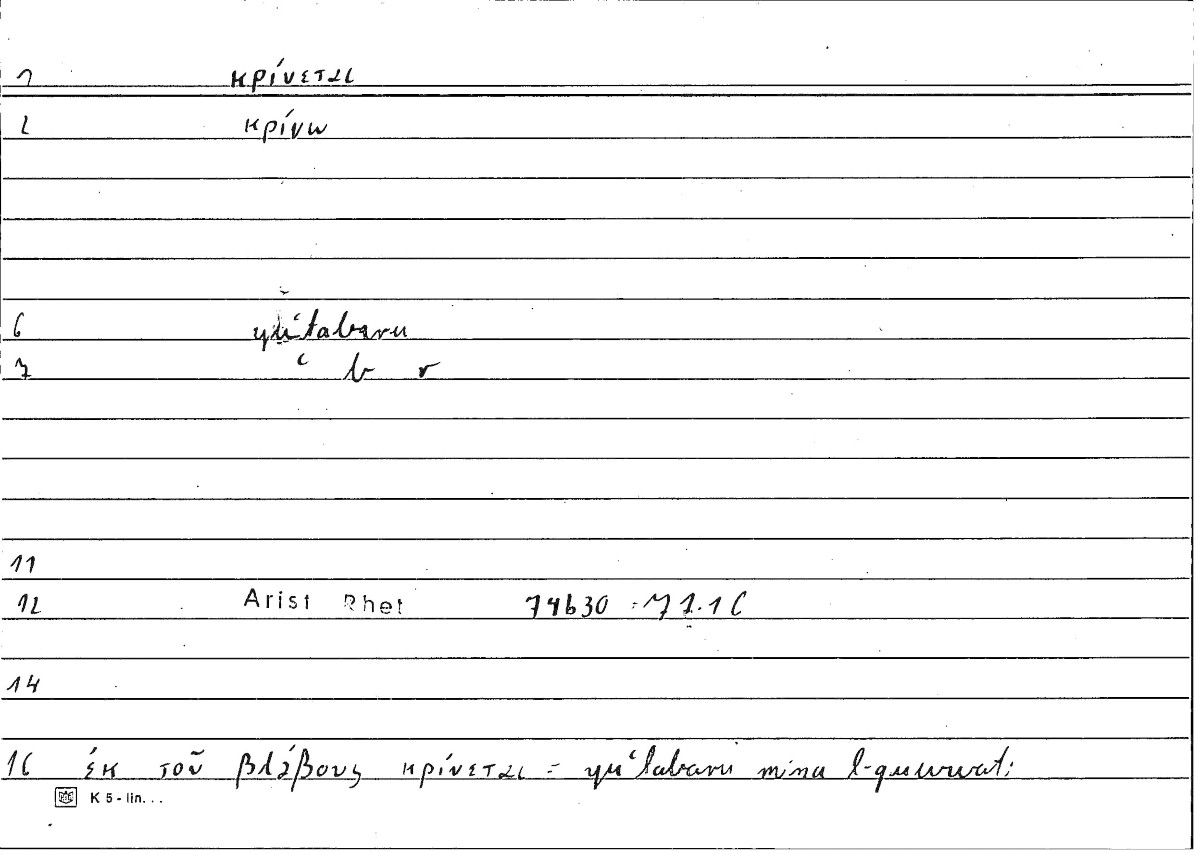 1 κρίνεται
2 κρίνω
6 yuʿtabaru
7 ʿ b r
11
12 Arist Rhet 74b30 = 71.16
14
16 ἐκ τοῦ βλάβους κρίνεται = yuʿtabaru mina l-quwwati
K 5 - lin. . .